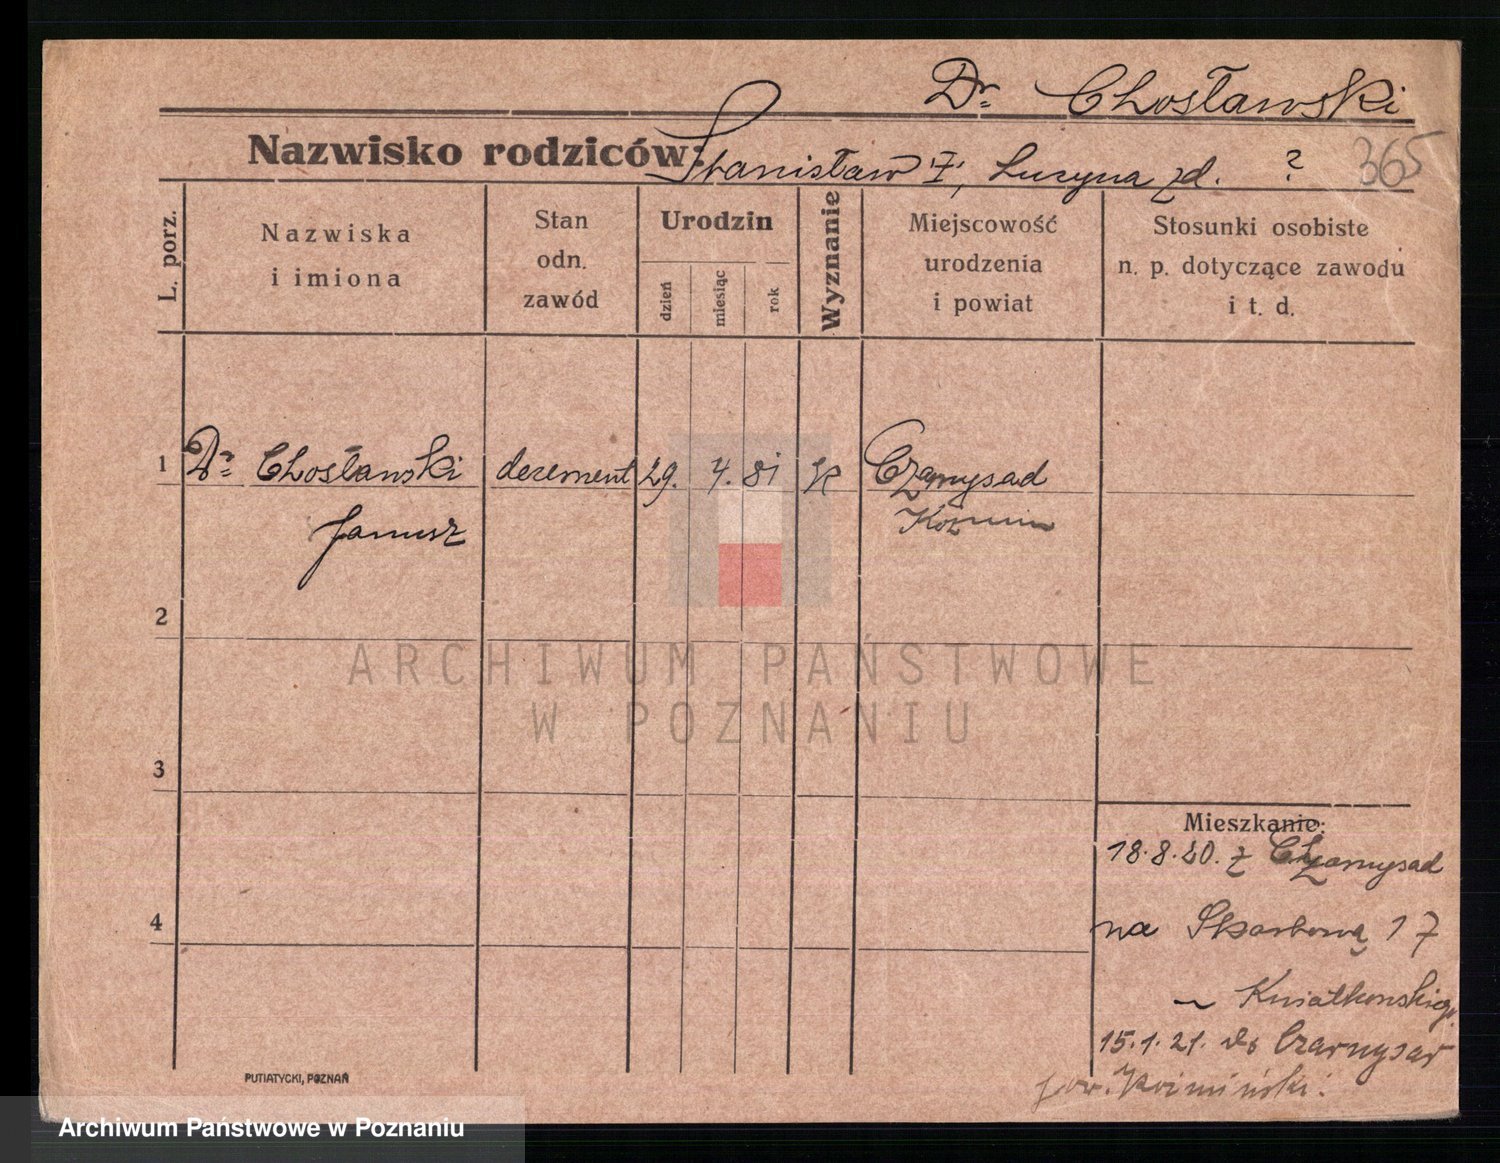 Dr. Chosławski
Nazwisko rodziców: Stanisław "Z", Lucyna zd. ? 365
L. porz.
Nazwiska
i imiona
Stan
odn.
zawód
Urodzin
dzień
miesiąc
rok
Wyznanie
Miejscowość
urodzenia
i powiat
Stosunki osobiste
n. p. dotyczące zawodu
i t. d.
1 Dr. Chosławski decement 29. 4. 81 K Czarnysad
Janusz Koźmin
2
ARCHIWUM PAŃSTWOWE
W POZNANIU
3
Mieszkanie:
18.8.20. z Czarnysad
4
na Skarbową 17
Kwiatkowskiego
15.1.21. do Czarnysad
pow. Koźmiński.
PUTIATYCKI, POZNAŃ
Archiwum Państwowe w Poznaniu